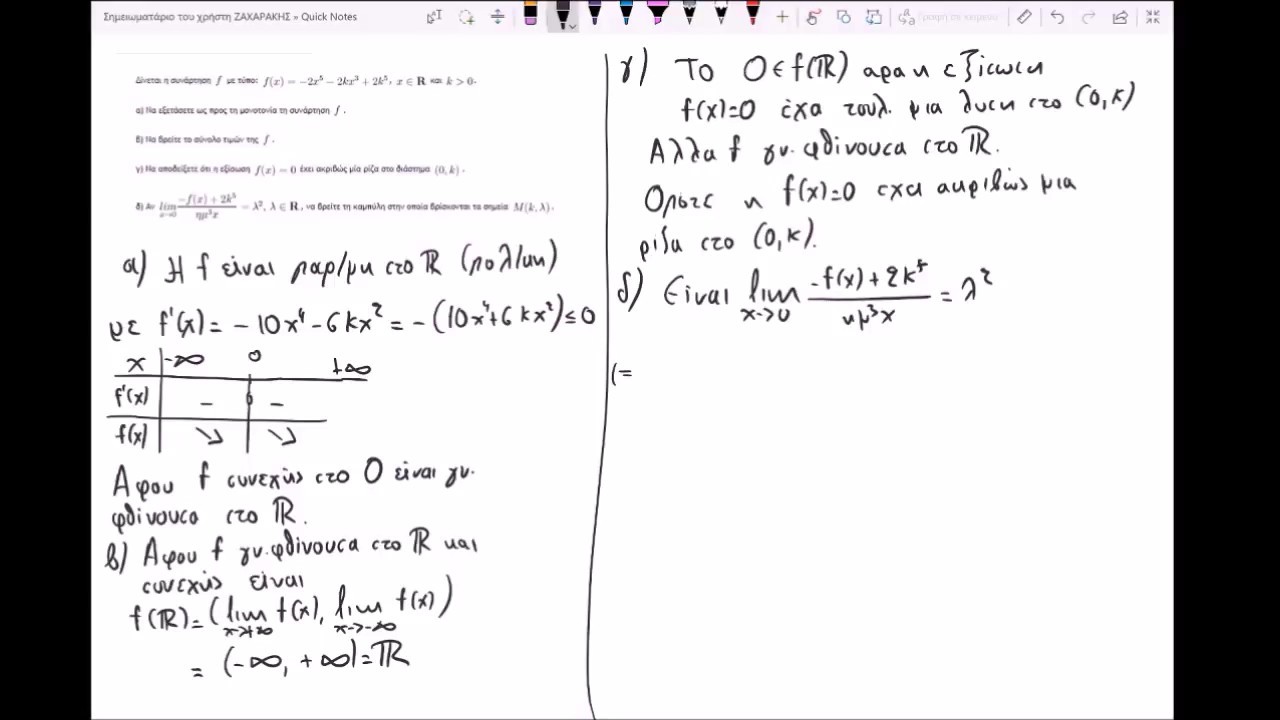 Σημειωματάριο του χρήστη ΖΑΧΑΡΑΚΗΣ » Quick Notes
Γραφή σε κείμενο
Δίνεται η συνάρτηση f με τύπο: f(x) = −2x⁵ − 2kx³ + 2k⁵, x ∈ R και k > 0.
α) Να εξετάσετε ως προς τη μονοτονία τη συνάρτηση f.
β) Να βρείτε το σύνολο τιμών της f.
γ) Να αποδείξετε ότι η εξίσωση f(x) = 0 έχει ακριβώς μία ρίζα στο διάστημα (0, k).
δ) Αν lim x→0 (−f(x) + 2k⁵)/(ημ³x) = λ², λ ∈ R, να βρείτε τη καμπύλη στην οποία βρίσκονται τα σημεία M(k, λ).
α) Η f είναι παρ/μη στο ℝ (πολ/μη)
με f'(x) = −10x⁴ − 6kx² = −(10x⁴ + 6kx²) ≤ 0
x −∞ 0 +∞
f'(x) − 0 −
f(x) ↘ ↘
Αφου f συνεχής στο 0 είναι γν.
φθίνουσα στο ℝ.
β) Αφου f γν. φθίνουσα στο ℝ και
συνεχής είναι
f(ℝ) = (lim x→+∞ f(x), lim x→−∞ f(x))
= (−∞, +∞) = ℝ
γ) Το 0 ∈ f(ℝ) αρα η εξίσωση
f(x)=0 έχει τουλ. μια λυση στο (0,k)
Αλλα f γν. φθίνουσα στο ℝ.
Οποτε η f(x)=0 εχει ακριβώς μια
ριζα στο (0,k).
δ) Είναι lim x→0 (−f(x) + 2k⁵)/(ημ³x) = λ²
(=